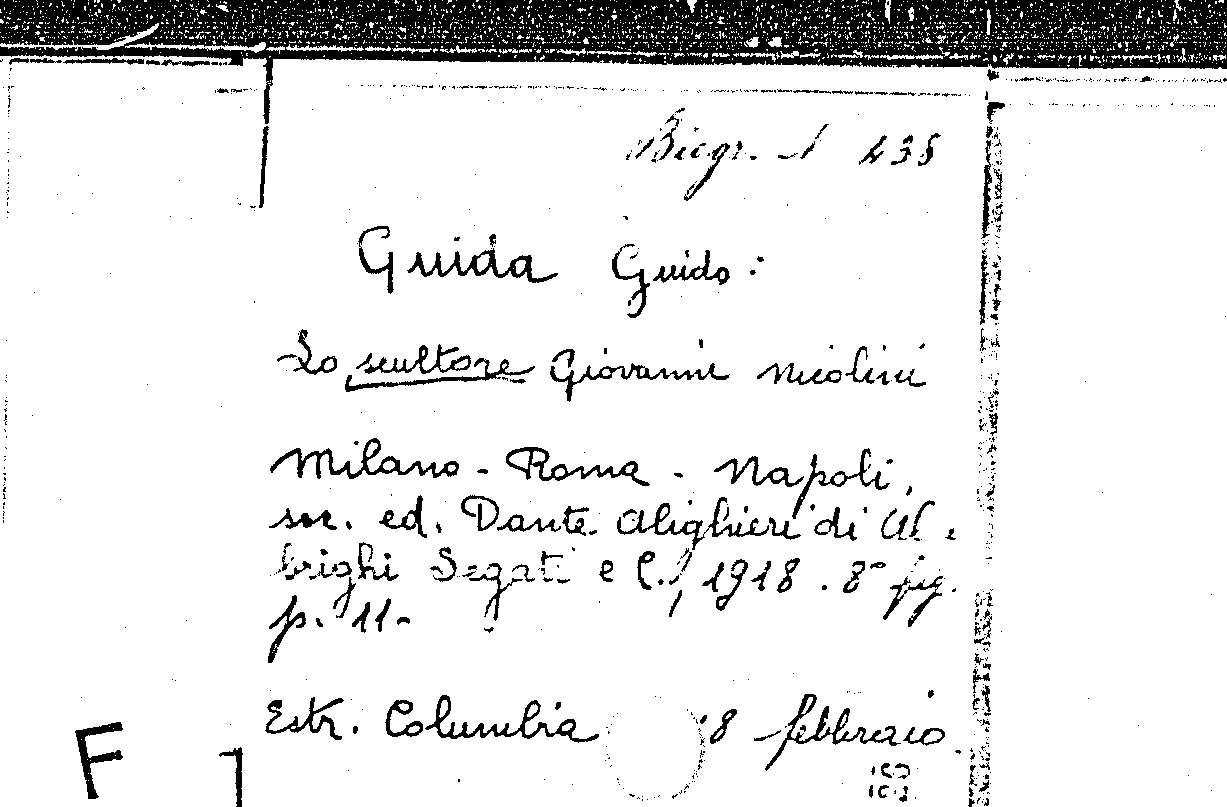 Biogr. A 435
Guida Guido:
Lo scultore Giovanni Nicolini
Milano - Roma - Napoli,
soc. ed. Dante Alighieri di Al-
brighi Segati e C., 1918. 8° fig.
p. 11-
Estr. Columbia 18 febbraio
F